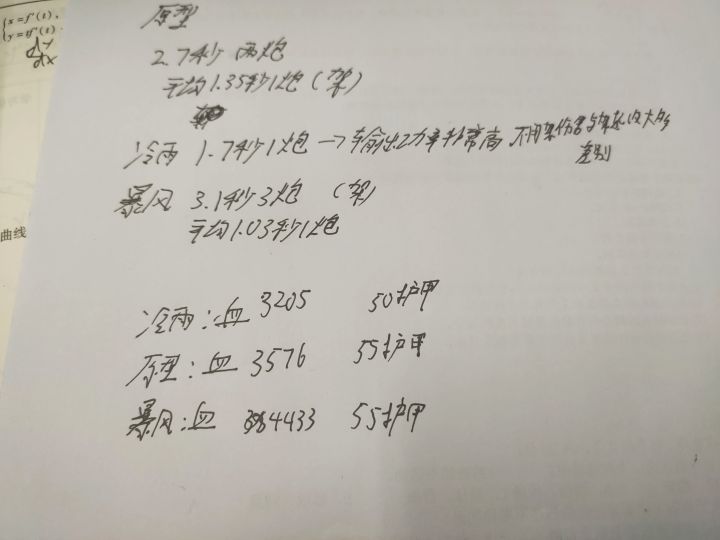 {x=f'(t),
y=tf'(t).
曲线
原型
2.7秒两炮
平均1.35秒1炮(架)
冷雨 1.7秒1炮→输出功率非常高 不用架伤害与架起没大多
差别
暴风 3.1秒3炮 (架)
平均1.03秒1炮
冷雨:血 3205 50护甲
原型:血 3576 55护甲
暴风:血 4433 55护甲